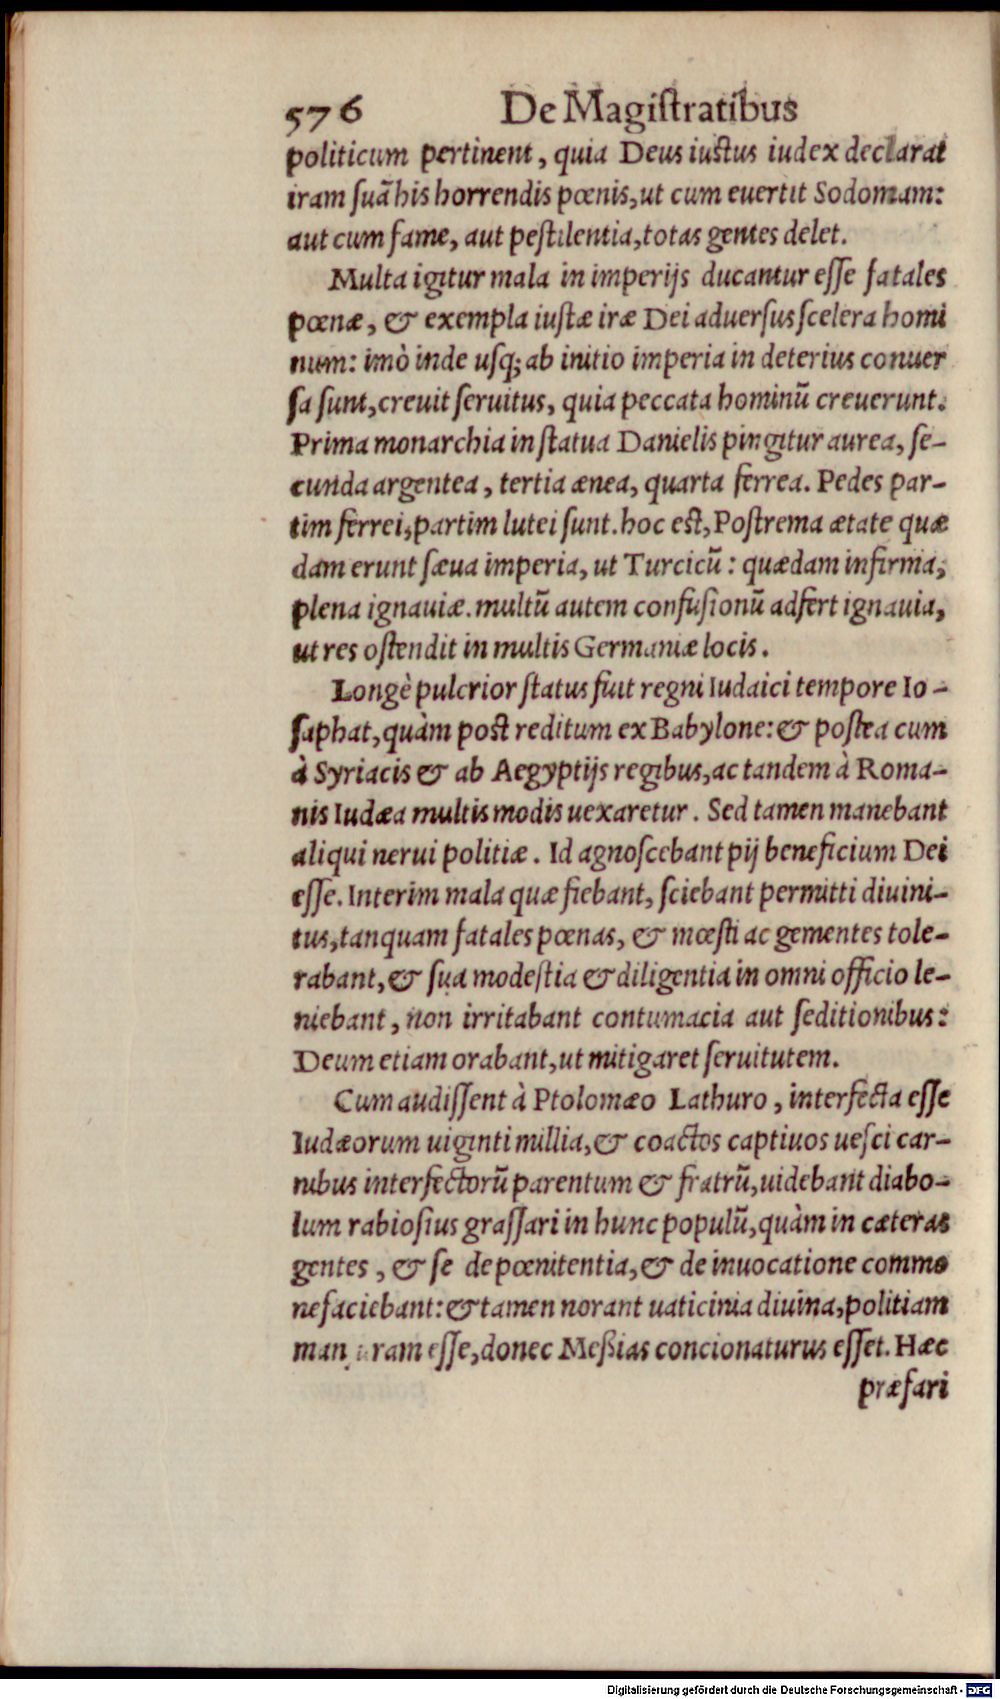 576 De Magistratibus
politicum pertinent, quia Deus iustus iudex declarat
iram suã his horrendis pœnis, ut cum euertit Sodomam:
aut cum fame, aut pestilentia, totas gentes delet.
Multa igitur mala in imperijs ducantur esse fatales
pœnæ, & exempla iustæ iræ Dei aduersus scelera homi
num: imò inde usq; ab initio imperia in deterius conuer
sa sunt, creuit seruitus, quia peccata hominũ creuerunt.
Prima monarchia in statua Danielis pingitur aurea, se-
cunda argentea, tertia ænea, quarta ferrea. Pedes par-
tim ferrei, partim lutei sunt. hoc est, Postrema ætate quæ
dam erunt sæua imperia, ut Turcicũ: quædam infirma,
plena ignauiæ. multũ autem confusionũ adfert ignauia,
ut res ostendit in multis Germaniæ locis.
Longè pulcrior status fuit regni Iudaici tempore Io-
saphat, quàm post reditum ex Babylone: & postea cum
à Syriacis & ab Aegyptijs regibus, ac tandem à Roma-
nis Iudæa multis modis uexaretur. Sed tamen manebant
aliqui nerui politiæ. Id agnoscebant pij beneficium Dei
esse. Interim mala quæ fiebant, sciebant permitti diuini-
tus, tanquam fatales pœnas, & mœsti ac gementes tole-
rabant, & sua modestia & diligentia in omni officio le-
niebant, non irritabant contumacia aut seditionibus:
Deum etiam orabant, ut mitigaret seruitutem.
Cum audissent à Ptolomæo Lathuro, interfecta esse
Iudæorum uiginti millia, & coactos captiuos uesci car-
nibus interfectorũ parentum & fratrũ, uidebant diabo-
lum rabiosius grassari in hunc populũ, quàm in cæteras
gentes, & se de pœnitentia, & de inuocatione commo
nefaciebant: & tamen norant uaticinia diuina, politiam
esse, donec Meßias concionaturus esset. Hæc
præfari
Digitalisierung gefördert durch die Deutsche Forschungsgemeinschaft - DFG